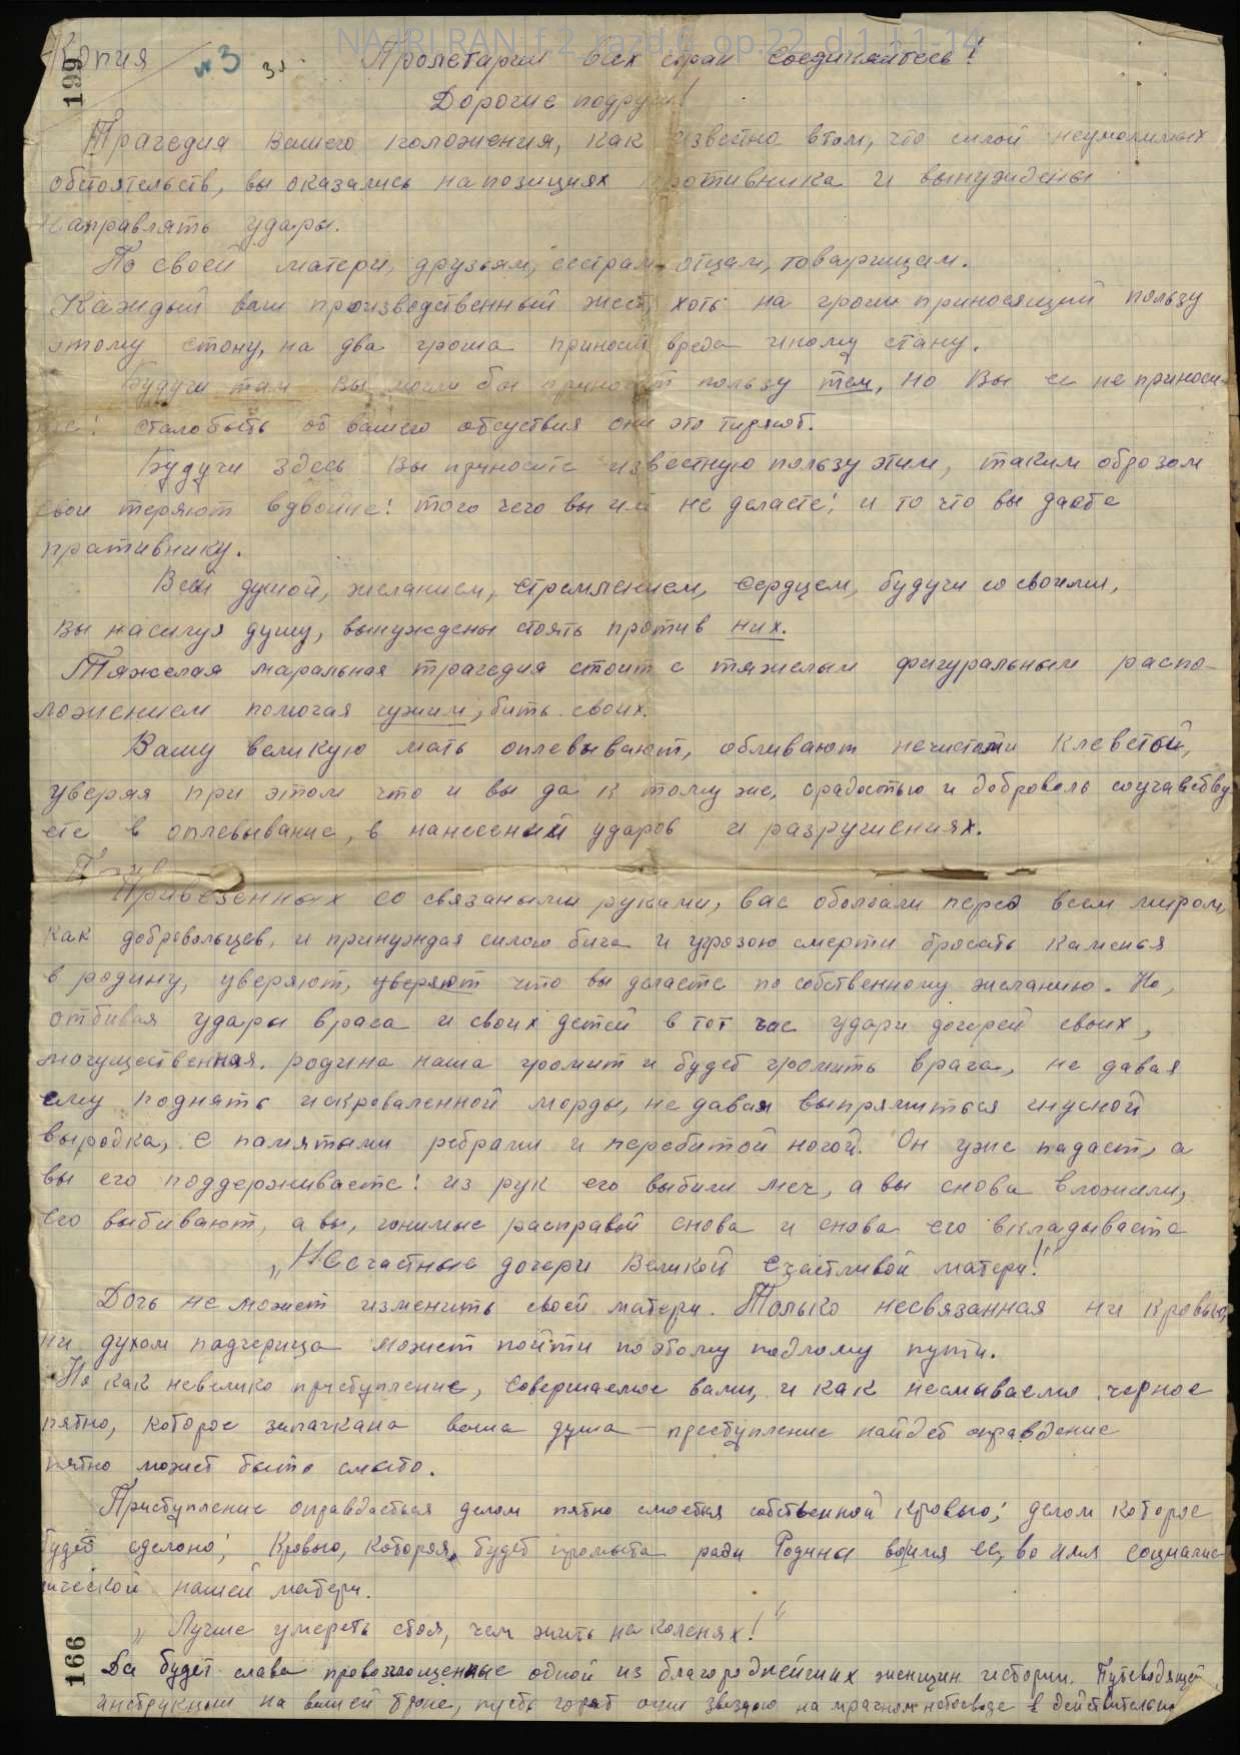 NA IRI RAN f.2 razd.6 op.22 d.1 l.11-14
Копия № 3 Пролетарии всех стран соединяйтесь!
199
Дорогие подруги!
Трагедия Вашего положения, как известно втом, что силой неумолимых
обстоятельств, вы оказались на позициях противника и вынуждены
направлять удары.
По своей матери, друзьям, сестрам, отцам, товарищам.
Каждый ваш производственный жест, хоть на грош приносящий пользу
этому стону, на два гроша приносит вреда иному стану.
Будучи там Вы могли бы приносит пользу тем, но Вы ее не приноси-
те! сталобыть от вашего отсуствия они это тиряют.
Будучи здесь Вы приносите известную пользу этим, таким образом
свои теряют вдвойне! того чего вы им не делаете! и то что вы даете
пративнику.
Всей душой, желанием, стремлением, сердцем, будучи со своими,
вы насилуя душу, вынуждены стоять против них.
Тяжелая маральная трагедия стоит с тяжелым фигуральным распо-
ложением помогая чужим, бить своих.
Вашу великую мать оплевывают, обливают нечистоти клеветой,
уверяя при этом что и вы да к тому же, срадостью и доброволь соучавству
ете в оплевывание, в нанесений ударов и разрушениях.
Привезенных со связаными руками, вас оболгали перед всем миром,
как добровольцев, и принуждая силою бича и угрозою смерти бросать каменья
в родину, уверяют, уверяют что вы делаете по собственному желанию. Но,
отбивая удары врага и своих детей в тот час удары дочерей своих,
могущественная родина наша громит и будет громить врага, не давая
ему поднять искроваленной морды, не давая выпрямиться гнусной
выродка, с памятыми ребрами и перебитой ногой. Он уже падает, а
вы его поддерживаете! из рук его выбили меч, а вы снова вложили,
его выбивают, а вы, гонимые расправой снова и снова его вкладываете
„Несчастные дочери Великой Счастливой матери!"
Дочь не может изменить своей матери. Только несвязанная ни кровью,
ни духом падчерица может пойти поэтому подлому пути.
Но как невелико приступление, совершаемое вами, и как несмываемо черное
пятно, которое запачкана ваша душа — преступление найдет оправдение
пятно может быть смыто.
Приступление оправдаеться делом пятно смоется собственной кровью; делом которое
будет сделоно; Кровью, которая, будет промыта ради Родины во имя ее, во имя социалис
тической нашей матери.
„Лучше умереть стоя, чем жить на коленях!"
166
Да будет слава провозглощенные одной из благороднейших женщин истории. Путеводящей
инструкцыи на вашей броне, пусть горят они звездою на мрачном небосводе в действительно